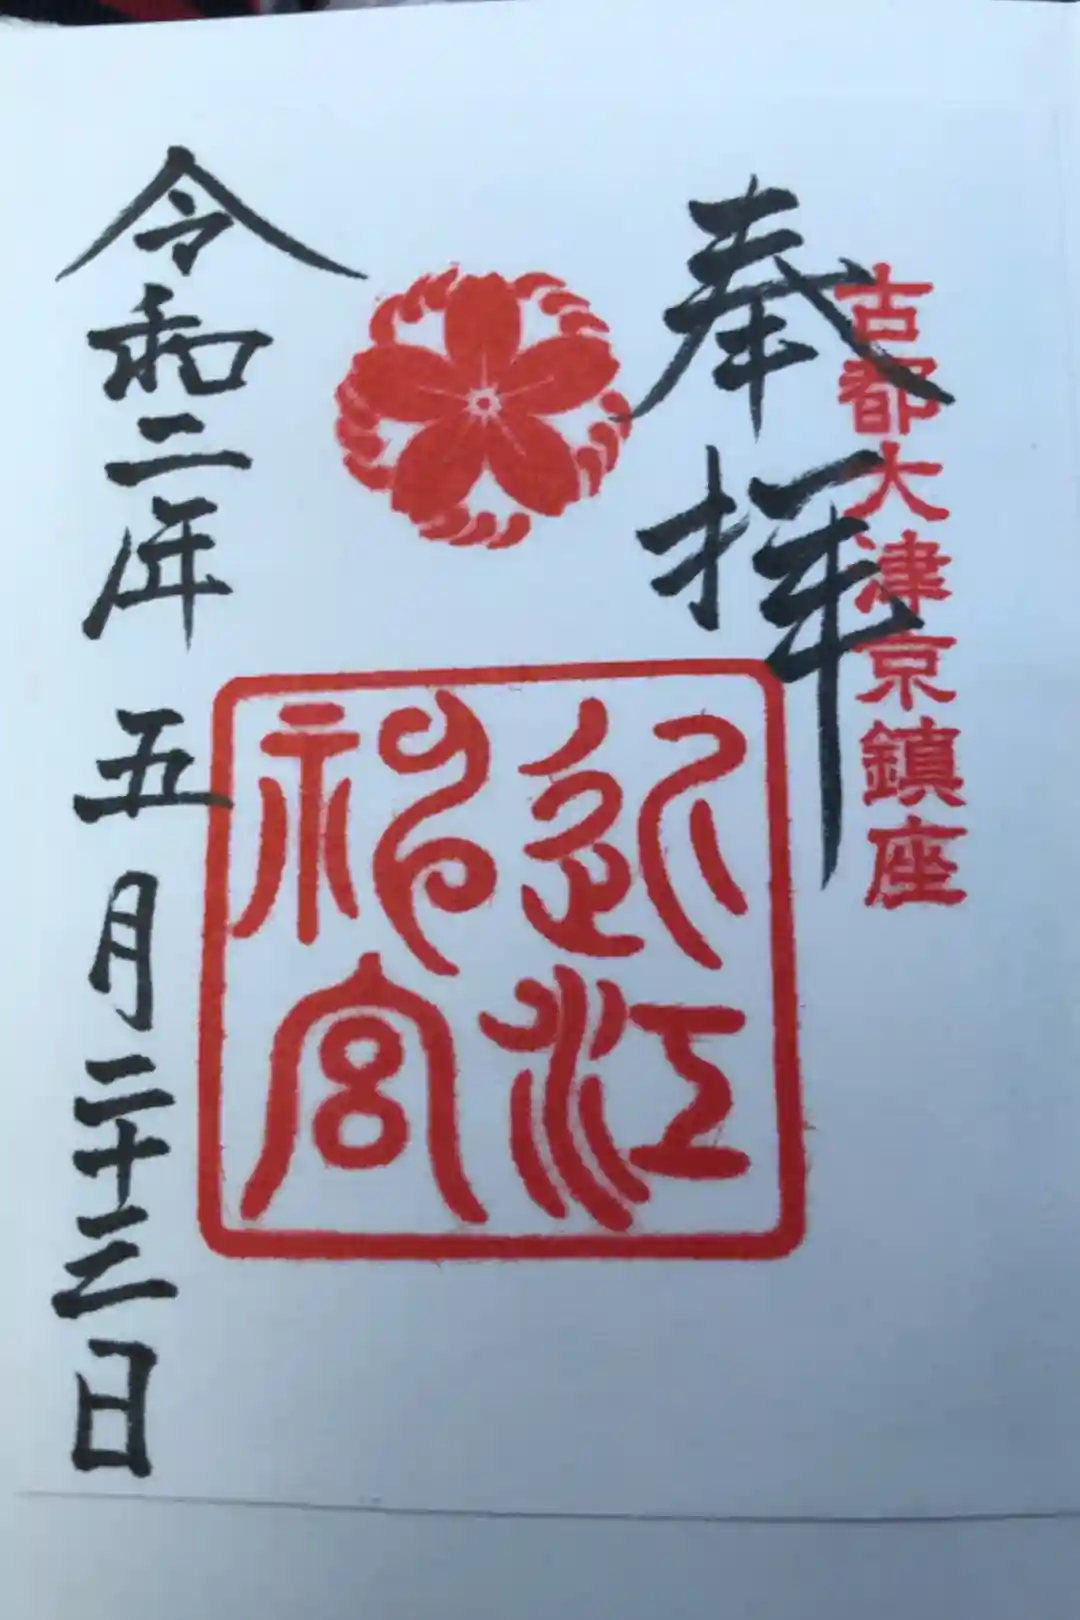 古都大津京鎮座
奉拝
近江
神宮
令和二年五月二十三日